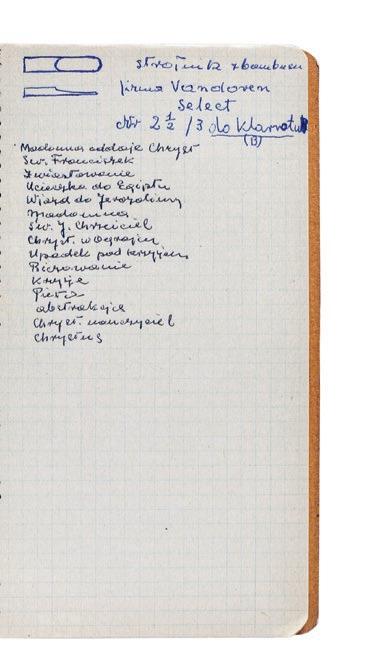 stroiník z bambusa
firma Vandoren
select
Nr 2 1/2 / 3 do klarnetu
(B)
Madonna oddaje Chryst
Św. Franciszek
Zwiastowanie
Ucieczka do Egiptu
Wjazd do Jerozolimy
Madonna
Św. J. Chrzciciel
Chryst. w Ogrojcu
Upadek pod krzyżem
Biczowanie
Krzyże
Pieta
abstrakcja
Chryst. nauczyciel
Chrystus